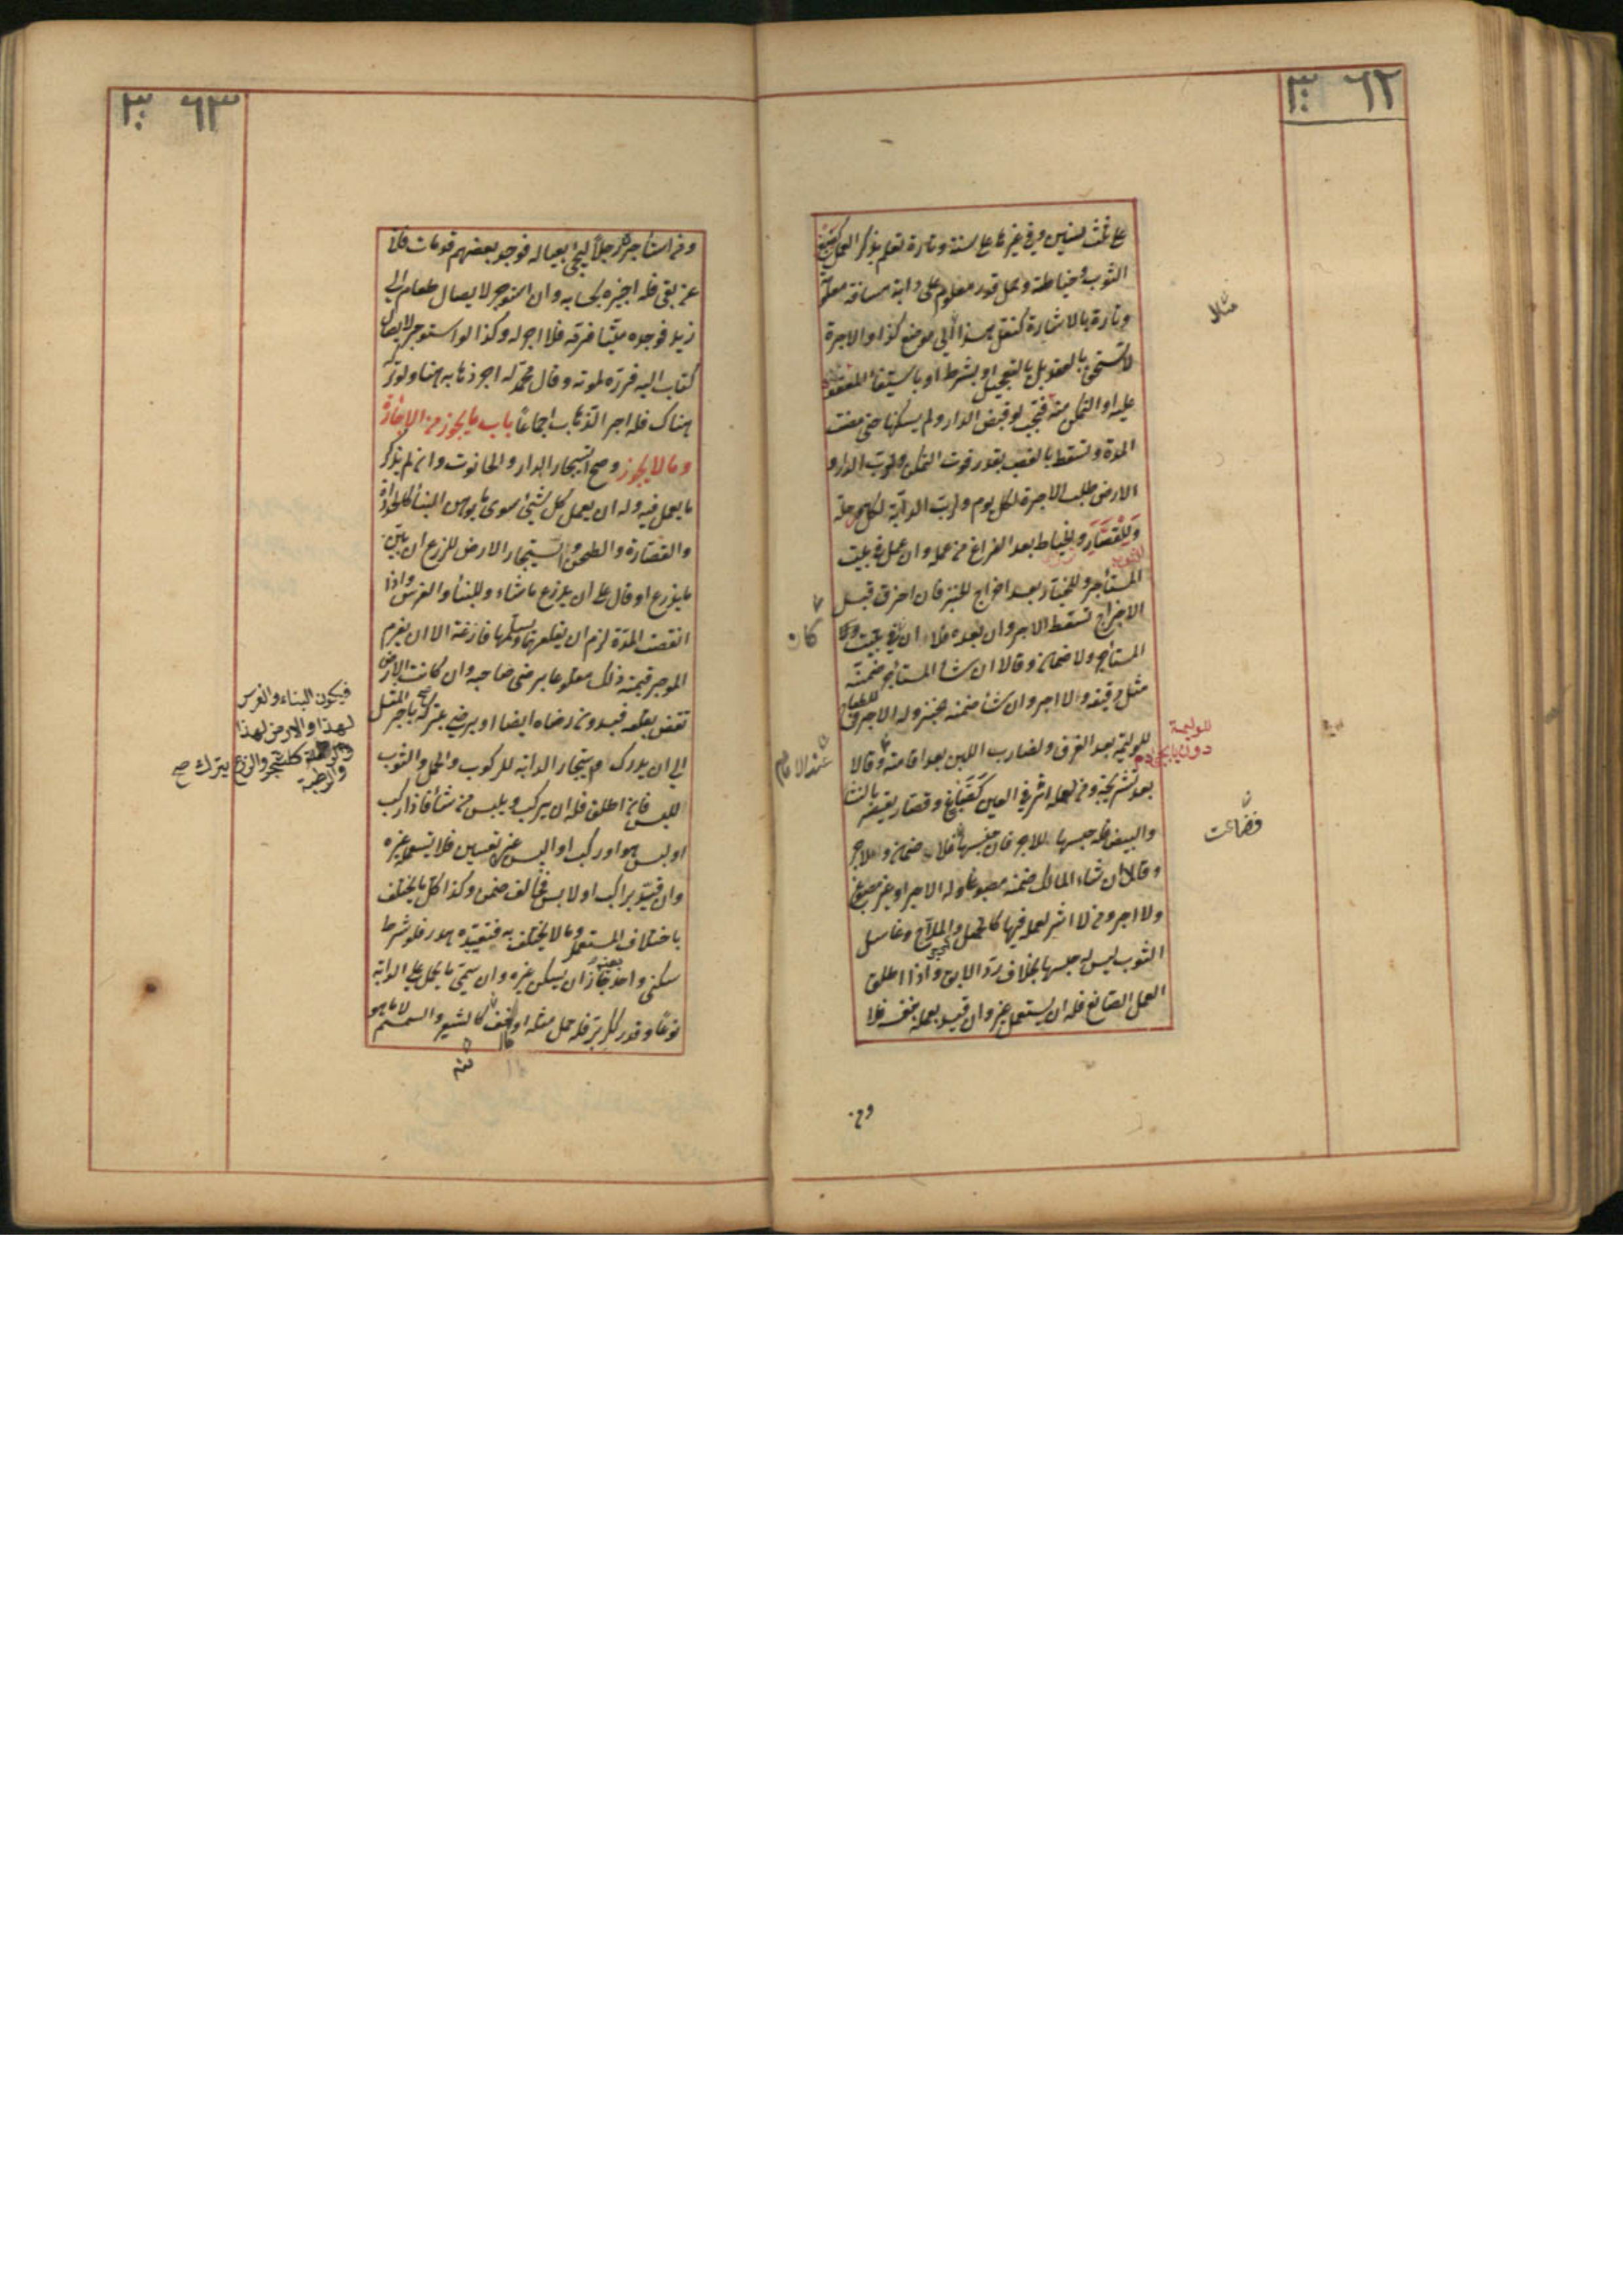 ٦٢ ٣٠
على ثلث سنين وفي غيرها على سنة وتارة تعلم بذكر العمل كصبغ
الثوب وخياطته وحمل قدر معلوم على دابة مسافة معلومة
وتارة بالاشارة كنقل هذا الى موضع كذا والاجرة
لا تستحق بالعقد بل بالتعجيل او بشرطه او باستيفاء المعقود
عليه او التمكن منه فتجب لو قبض الدار ولم يسكنها حتى مضت
المدة وتسقط بالغصب بقدر فوت التمكن ولرب الدار و
الارض طلب الاجرة لكل يوم ولرب الدابة لكل مرحلة
وللقصار والخياط بعد الفراغ من عمله وان عمل في بيت
المستأجر وللخباز بعد اخراج الخبز فان احترق قبل
الاخراج تسقط الاجر وان بعده فلا ان في بيت
المستأجر ولا ضمان وقالا ان شاء المستأجر ضمنه
مثل دقيقه ولا اجر وان شاء ضمنه خبز وله الاجر
للوليمة بعد الغرف ولضارب اللبن بعد اقامته وقالا
بعد تشريجه ومن لعمله اثر في العين كصباغ وقصار يقصر بالنشا
والبيض فله حبسها للاجر فان حبسها فلا ضمان ولا اجر
وقالا ان شاء المالك ضمنه مصبوغا وله الاجر او غير مصبوغ
ولا اجر ومن لا اثر لعمله فيها كالحمال والملاح وغاسل
الثوب ليس له حبسها بخلاف رد الابق واذا اطلق
العمل للصانع فله ان يستعمل غيره وان قيد بعمله بنفسه فلا
مثالا
كان
للوليمة
دون
عند الامام
فضاعت
ومن
٦٣ ٣٠
ومن استأجر رجلا ليجئ بعياله فوجد بعضهم قد مات فاتى
بمن بقى فله اجره بحسابه وان استوجر لايصال طعام الى
زيد فوجده ميتا فرده فلا اجر له وكذا لو استوجر لايصال
كتاب اليه فرده لموته وقال محمد له اجر ذهابه هنا ولو تركه
هناك فله اجر الذهاب اجماعا باب ما يجوز من الاجارة
وما لا يجوز وصح استيجار الدار والحانوت وان لم يذكر
ما يعمل فيه وله ان يعمل كل شئ سوى موهن البناء كالحدادة
والقصارة والطحن واستيجار الارض للزرع ان بين
ما يزرع او قال على ان يزرع ما شاء وللبناء والغرس واذا
انقضت المدة لزم ان يقلعهما ويسلمها فارغة الا ان يغرم
الموجر قيمة ذلك مقلوعا برضى صاحبه وان كانت الارض
تنقص بقلعه فبدون رضاه ايضا او يرضى بتركه باجر المثل
الى ان يدرك واستيجار الدابة للركوب والحمل والثوب
للبس فان اطلق فله ان يركب ويلبس من شاء فاذا ركب
او لبس هو او ركب او البس غيره تعين فلا يستعمله غيره
وان قيد براكب او لابس فخالف ضمن وكذا كل ما يختلف
باختلاف المستعمل وما لا يختلف به فتقييده هدر فلو شرط
سكنى واحد جاز ان يسكن غيره وان سمى ما يحمل على الدابة
نوعا وقدرا ككر بر فله حمل مثله او اخف كالشعير والسمسم لا ما هو
فيكون البناء والغرس
لهذا والارض لهذا
والرطبة كالشجر والزرع يترك صح